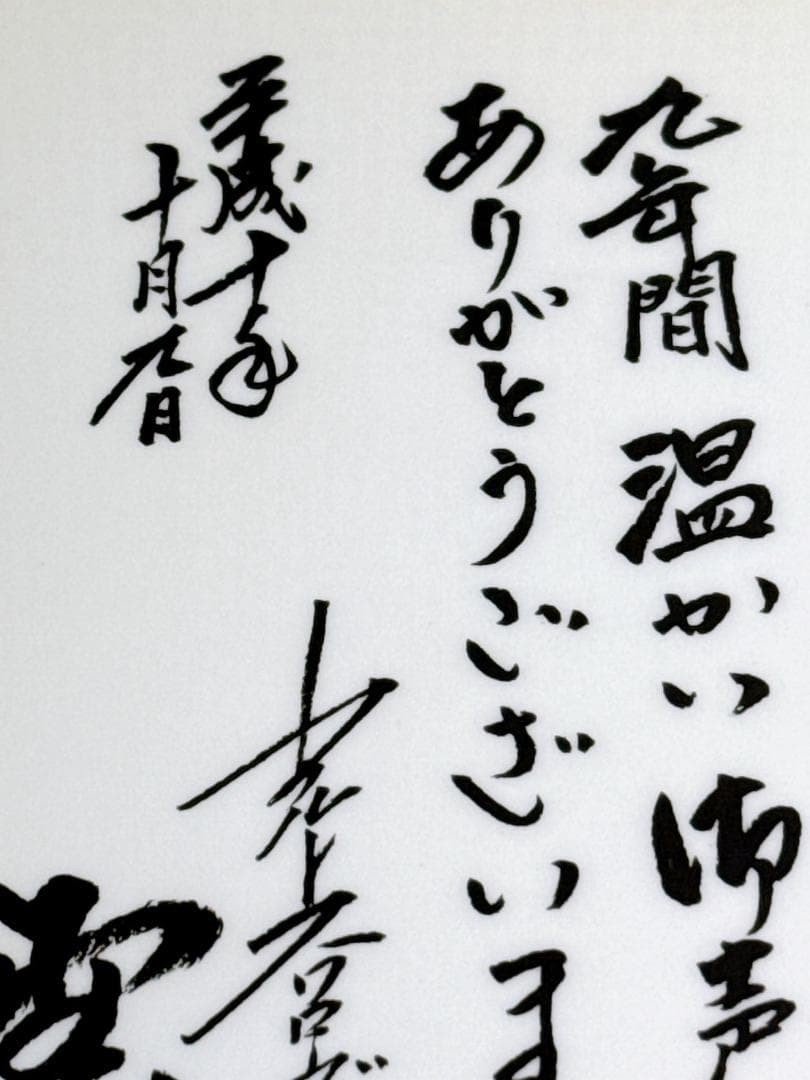 九年間 温かい 御声
ありがとうございま
平成十年
十月九日